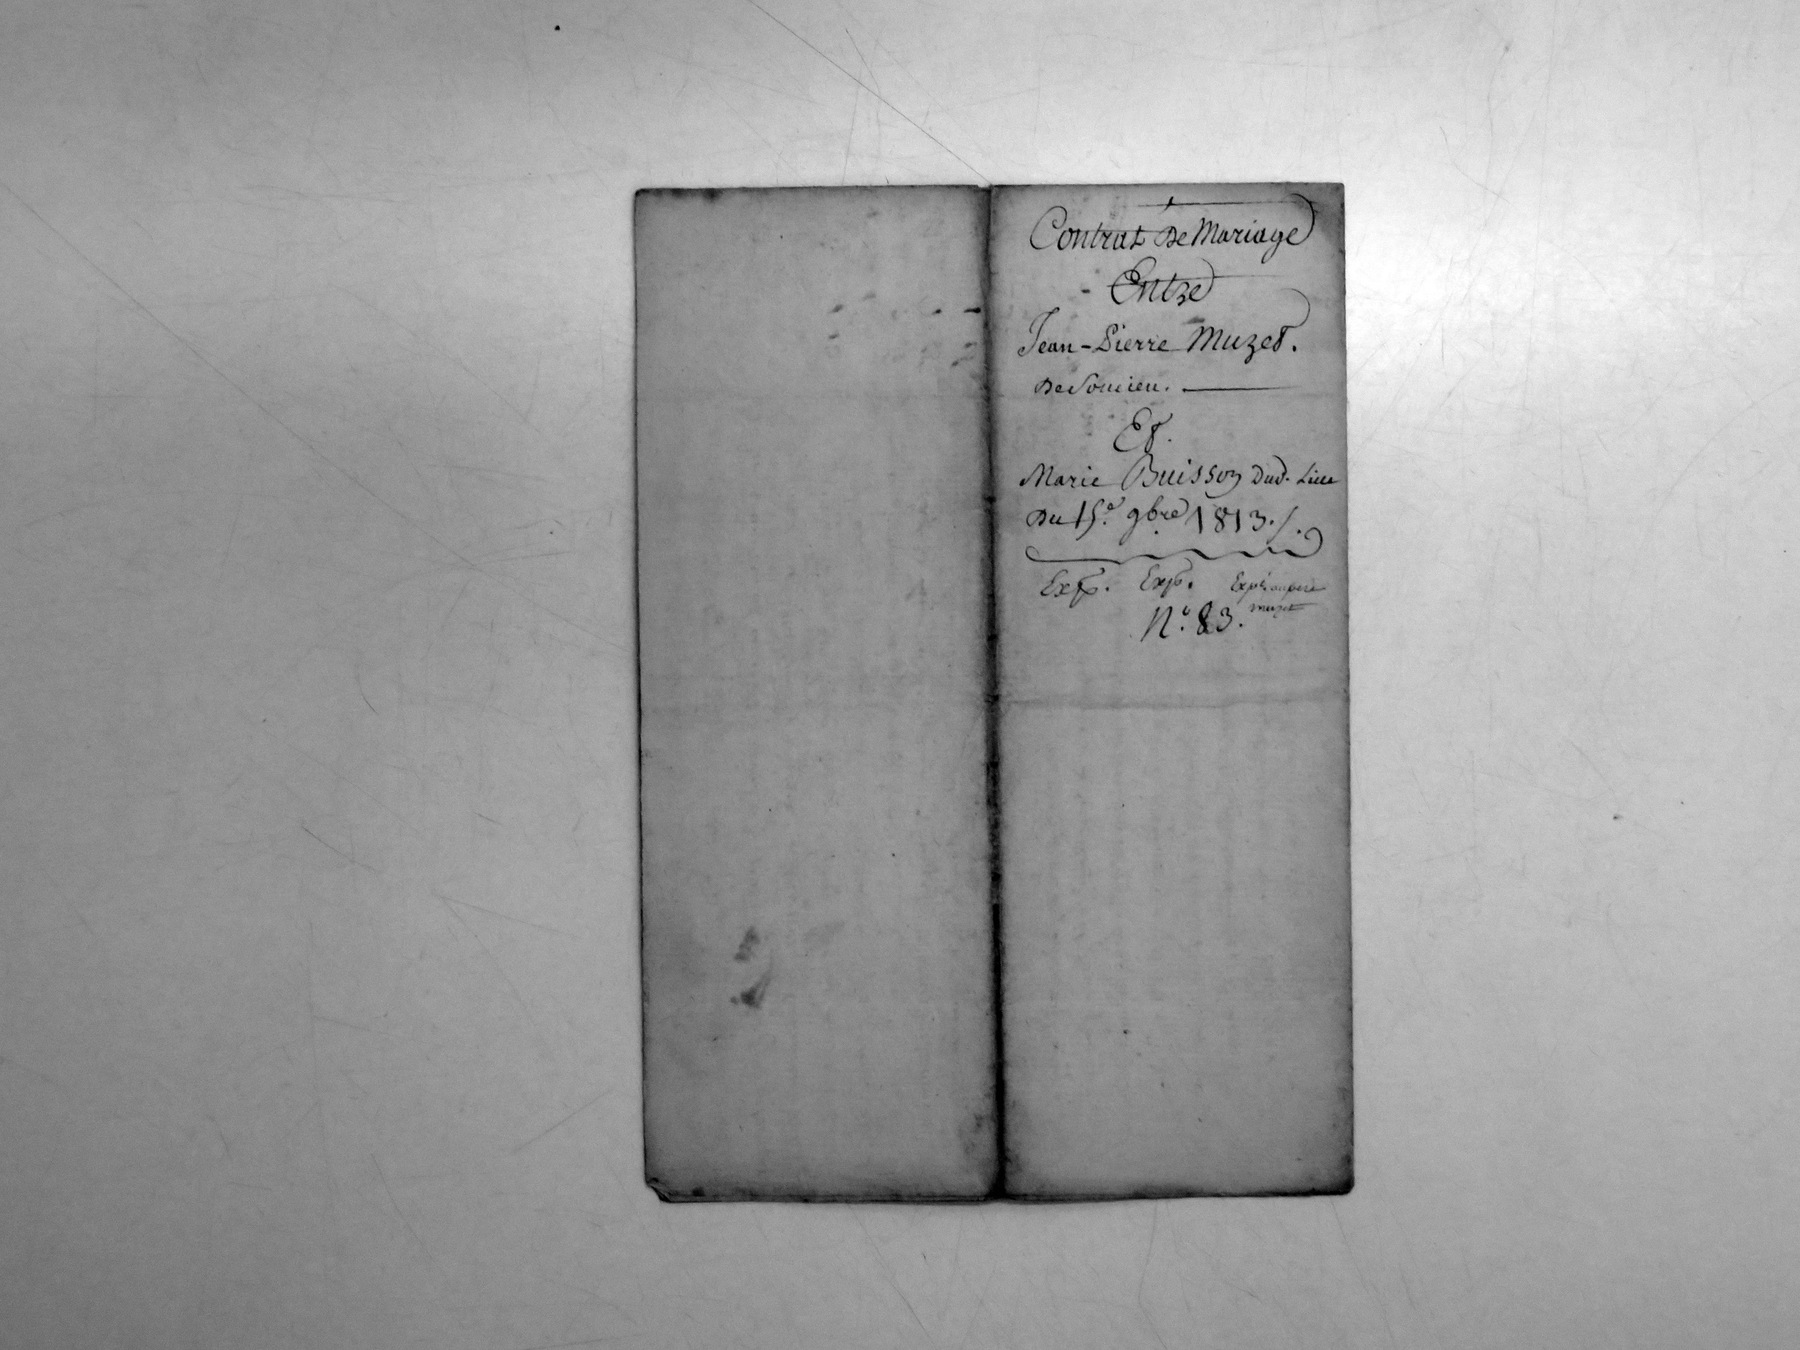 Contrat De Mariage
Entre
Jean-Pierre Muzet.
De Soucieu.
Et.
Marie Buisson Dud. Lieu
Du 15.e 9bre 1813./.
Exp. Exp. Expé. au père
muzet
N.o 83.